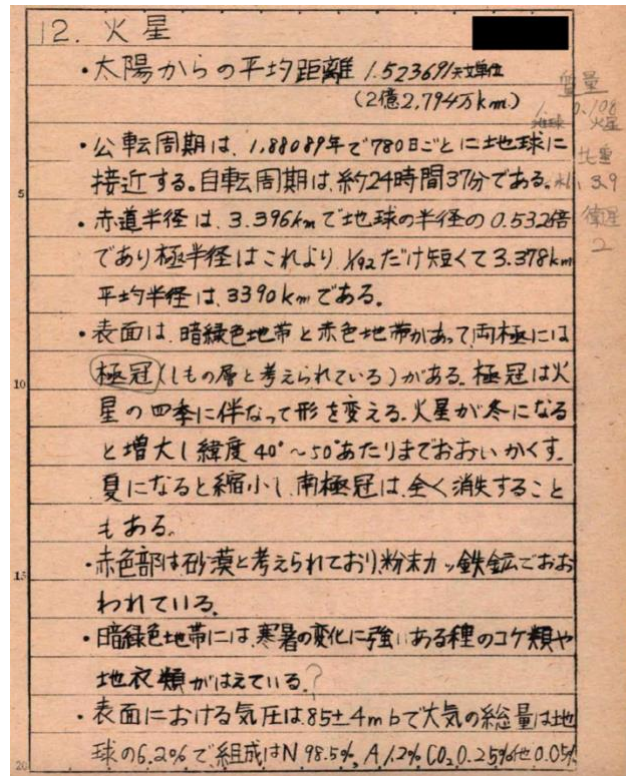 12. 火星
・太陽からの平均距離 1.523691天文単位
(2億2,794万km)
・公転周期は、1.88089年で780日ごとに地球に
接近する。自転周期は、約24時間37分である。
・赤道半径は、3.396kmで地球の半径の0.532倍
であり極半径はこれより、1/192だけ短くて3.378km
平均半径は、3390kmである。
・表面は、暗緑色地帯と赤色地帯があって、両極には
極冠(しもの層と考えられている)がある。極冠は火
星の四季に伴なって形を変える。火星が冬になる
と増大し緯度40°~50°あたりまでおおいかくす。
夏になると縮小し、南極冠は、全く消失すること
もある。
・赤色部は砂漠と考えられており、粉末カッ鉄鉱でおお
われている。
・暗緑色地帯には、寒暑の変化に強いある種のコケ類や
地衣類がはえている。?
・表面における気圧は85±4mbで大気の総量は地
球の5.2%で、組成はN 98.5%, A 1.2% CO₂0.25%他0.05%
質量
1 0.108
地球 火星
比重
水1 3.9
衛星
2
5
10
15
20